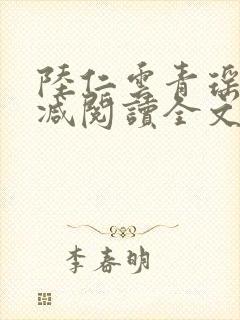 陸仁雲青瑶
减閱讀全文
李春明